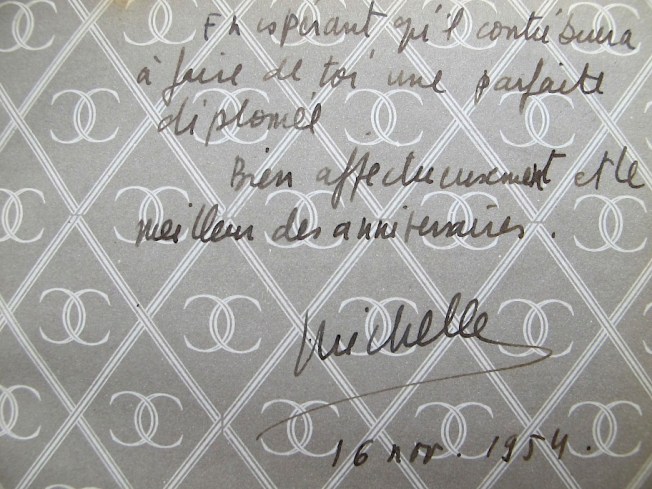 En espérant qu'il contribuera
à faire de toi une parfaite
diplomée
Bien affectueusement et le
meilleur des anniversaires.
Michelle
16 nov. 1954.